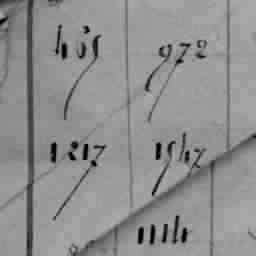 465 972
1217 1547
1114